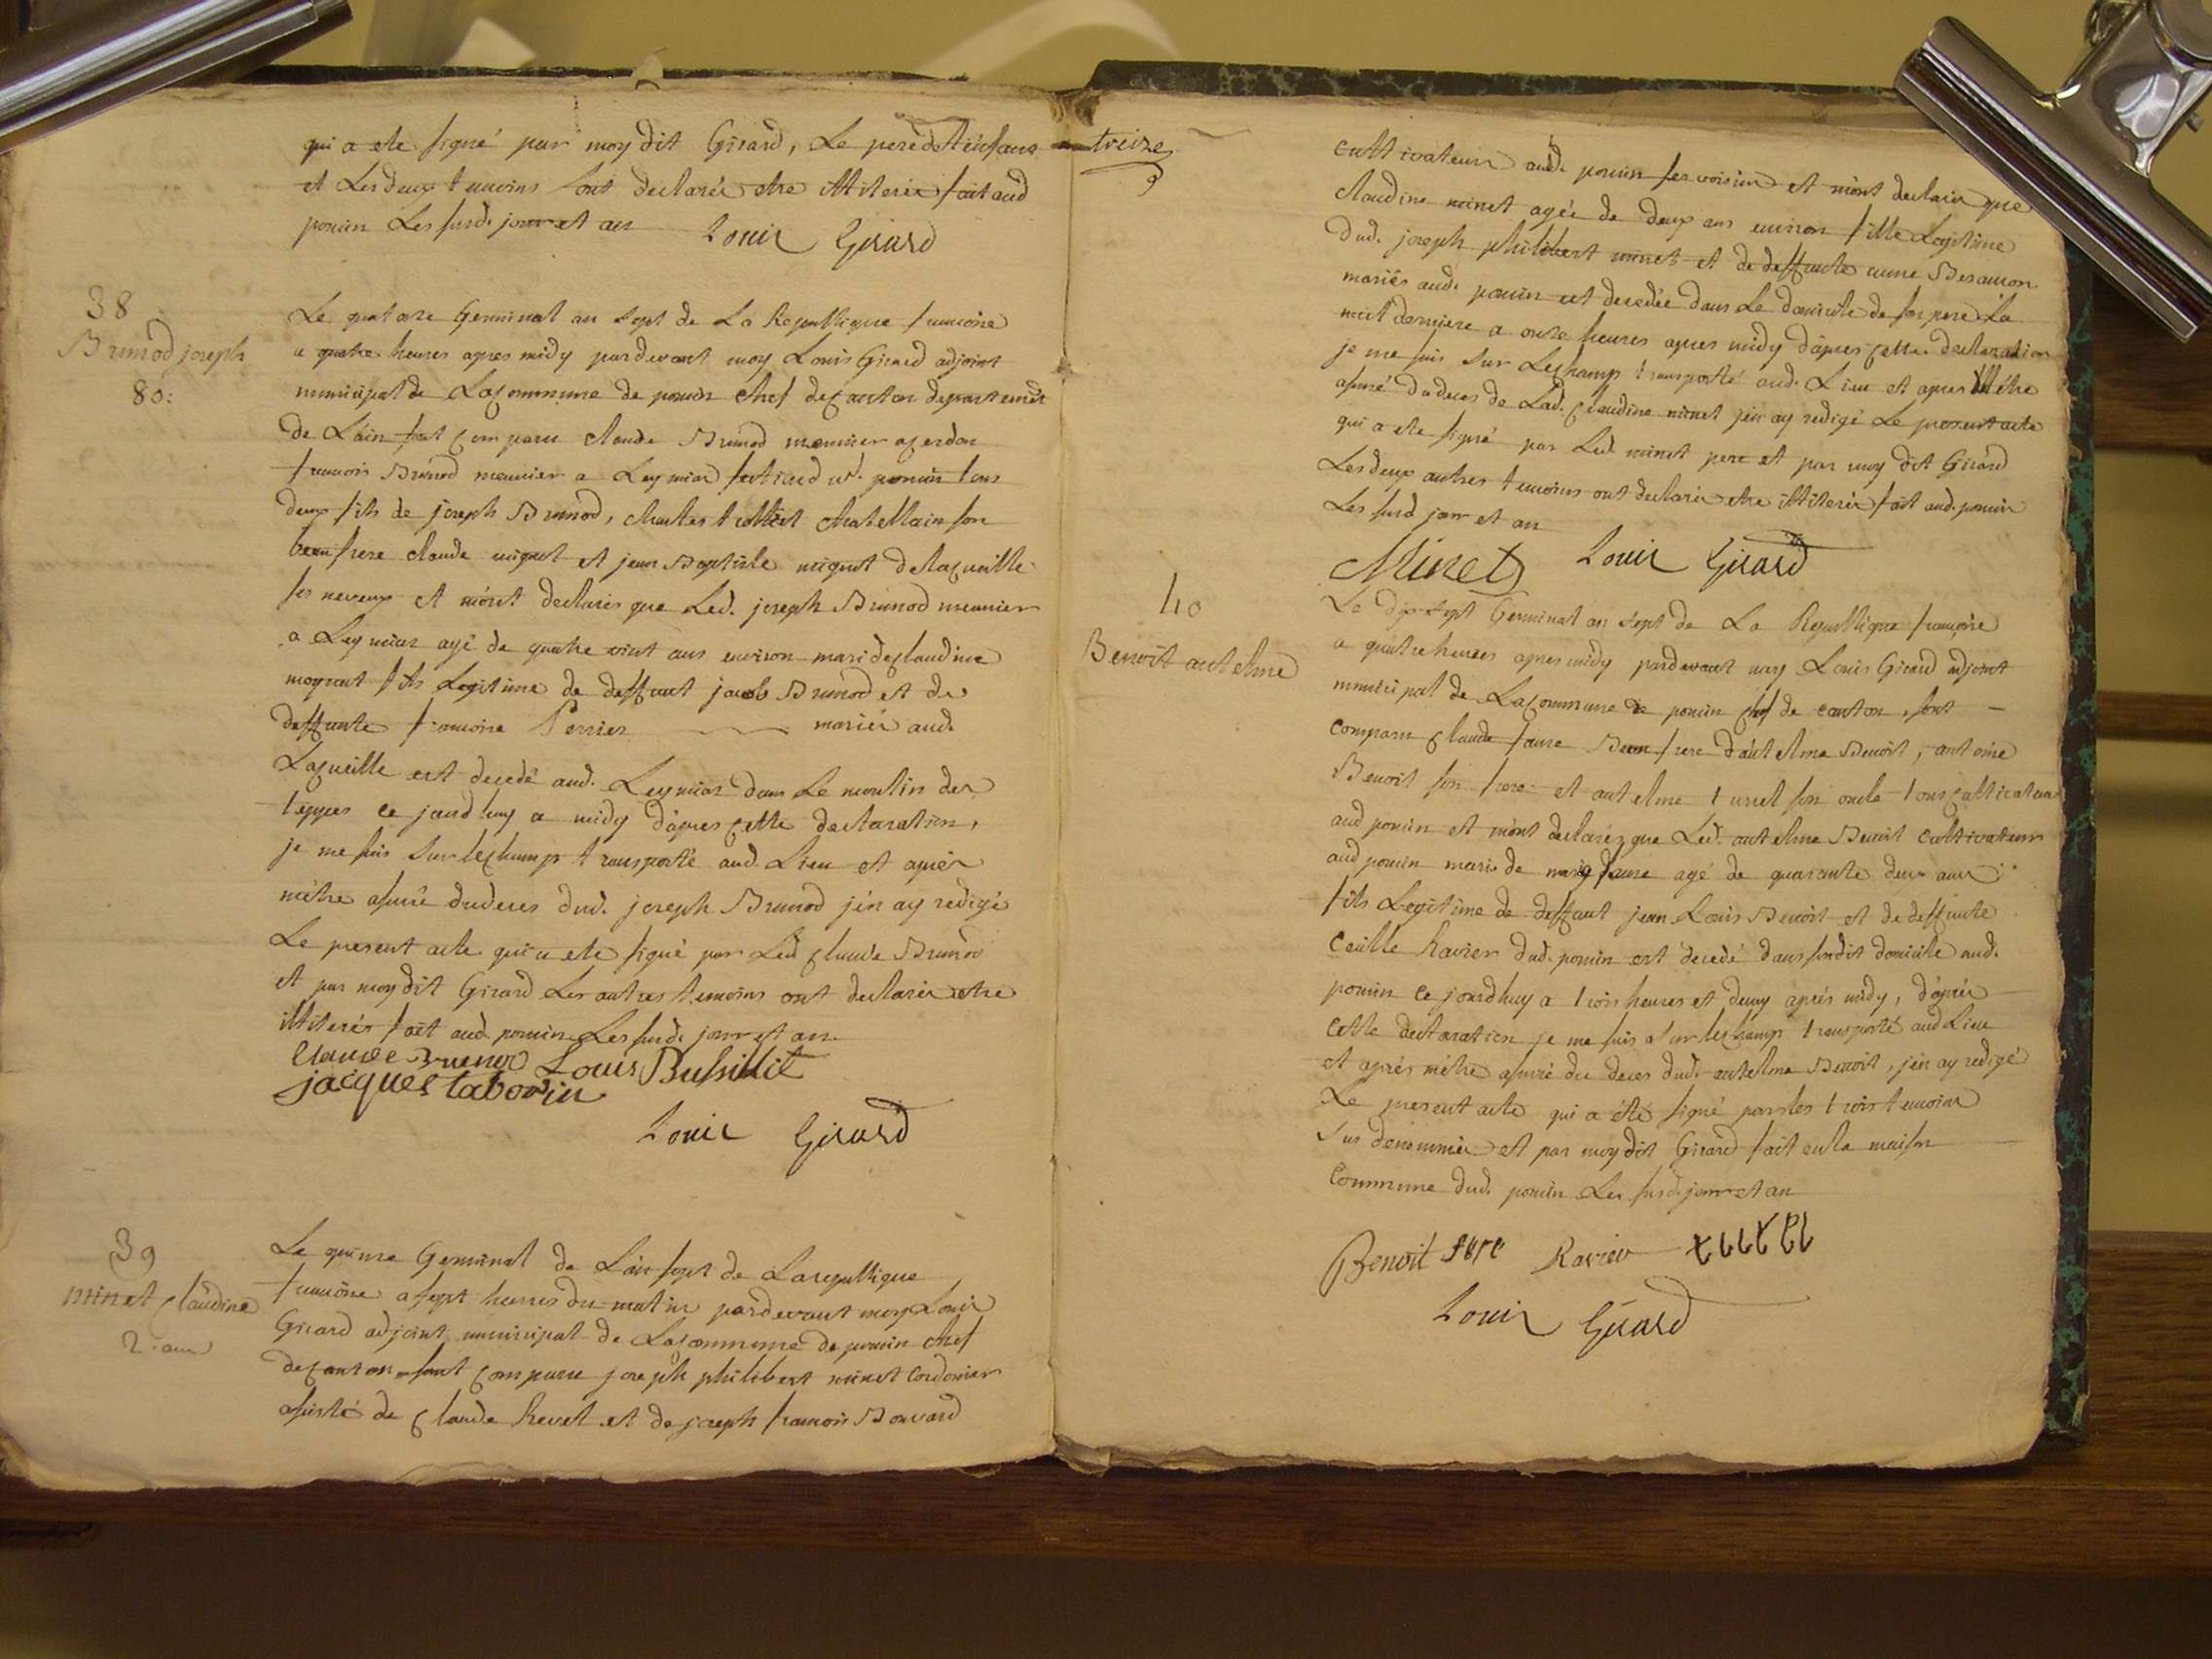 qui a ete signé par moy dit Girard, Le pere de l'enfans
et Les deux temoins sont declarés etre illiterés fait aud
poncin Les susd. jour et an Louis Girard
38
Brunod joseph
80:
Le quatorze Germinal an sept de La Republique francoise
a quatre heures apres midy pardevant moy Louis Girard adjoint
municipal de La commune de poncin chef de canton departement
de L'ain sont comparu claude Brunod meunier a cerdon
francois Brunod meunier a Leymiar poncin tous
deux fils de joseph Brunod, charles chatellain son
beau frere claude mignot et jean Baptiste mignot de la cueille
ses neveux et m'ont declarés que Led. joseph Brunod meunier
a Leymiar agé de quatre vint ans environ mari de claudine
moyrout fils Legitime de deffunt jacob Brunod et de
deffunte francoise Perrier mariés aud.
La cueille est decedé aud. Leymiar dans Le moulin des
teppes ce jourd huy a midy d'apres cette declaration,
je me suis sur le champ transporté aud. Lieu et aprés
m'etre assuré du deces dud. joseph Brunod j'en ay redigé
Le present acte qui a ete signé par Led claude Brunod
et par moy dit Girard Les autres temoins ont declarés etre
illiterés fait aud poncin Les susd. jour et an.
claude Brunod Louis Bussillit
jacques tabouin
Louis Girard
39
minet claudine
2. ans
Le quinze Germinal de L'an sept de La republique
francoise a sept heures du matin pardevant moy Louis
Girard adjoint municipal de La commune de poncin chef
de canton sont comparu joseph philibert minet cordonier
assisté de claude Revel et de joseph francois Bouvard
treize
cultivateurs aud. poncin ses voisins et m'ont declarés que
claudine minet agée de deux ans environ fille Legitime
dud. joseph philibert minet et de deffunte anne Besançon
mariés aud. poncin est decedée dans Le domicile de son pere La
nuit derniere a onze heures apres midy d'apres cette declaration
je me suis sur Le champ transporté aud. Lieu et apres m'etre
assuré du deces de Lad. claudine minet j'en ay redigé Le present acte
qui a ete signé par Led. minet pere et par moy dit Girard
Les deux autres temoins ont declarés etre illiterés fait aud. poncin
Les susd jour et an
Minet Louis Girard
40
Benoit antelme
Le dix sept Germinal an sept de La Republique francoise
a quatre heures apres midy pardevant moy Louis Girard adjoint
municipal de La commune de poncin chef de canton, sont
comparu claude faure Beau frere d'antelme Benoit, antoine
Benoit son frere et antelme turrel son oncle tous cultivateurs
aud poncin et m'ont declarés que Led. antelme Benoit cultivateur
aud poncin mari de marie faure agé de quarante deux ans
fils Legitime de deffunt jean Louis Benoit et de deffunte
Cecille Ravier dud. poncin est decedé dans sondit domicile aud.
poncin ce jourdhuy a trois heures et demy aprés midy, d'aprés
cette declaration je me suis sur le champ transporté aud Lieu
et aprés m'etre assuré du deces dud. antelme Benoit, j'en ay redigé
Le present acte qui a été signé par les trois temoins
sus denommés et par moy dit Girard fait en la maison
Commune dud. poncin Les susd. jour et an
Benoit Ravier
Louis Girard